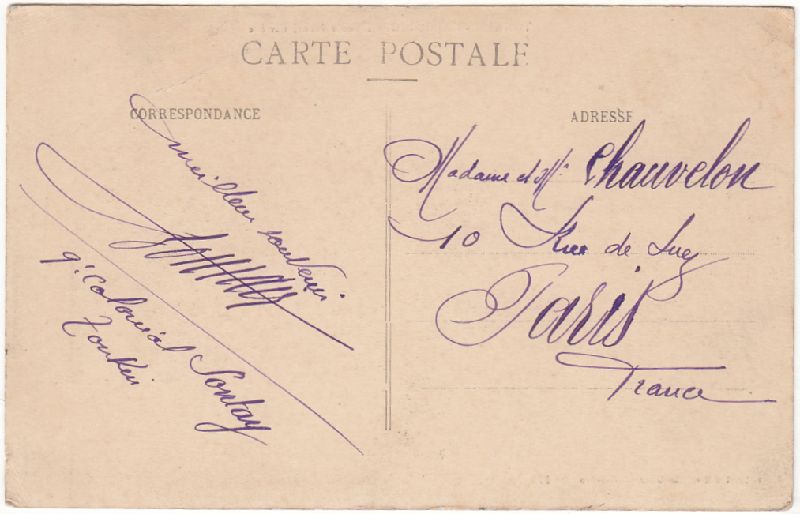 CARTE POSTALE
CORRESPONDANCE
meilleur souvenir
9e Colonial Sontay
Tonkin
ADRESSE
Madame et Mr Chauvelon
10 Rue de Suez
Paris
France